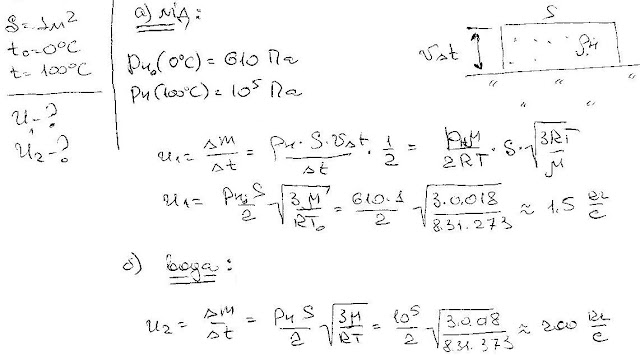 S = 1м²
t₀ = 0°C
t = 100°C
u₁ - ?
u₂ - ?
а) лёд:
Pн₀(0°C) = 610 Па
Pн(100°C) = 10⁵ Па
S
vΔt
ρн
u₁ = Δm/Δt = ρн · S · vΔt/Δt · 1/2 = PнM/2RT · S · √(3RT/M)
u₁ = Pн₀S/2 √(3M/RT₀) = 610·1/2 √(3·0,018/8.31·273) ≈ 1,5 кг/с
б) вода:
u₂ = Δm/Δt = PнS/2 √(3M/RT) = 10⁵/2 √(3·0.018/8.31·373) ≈ 200 кг/с